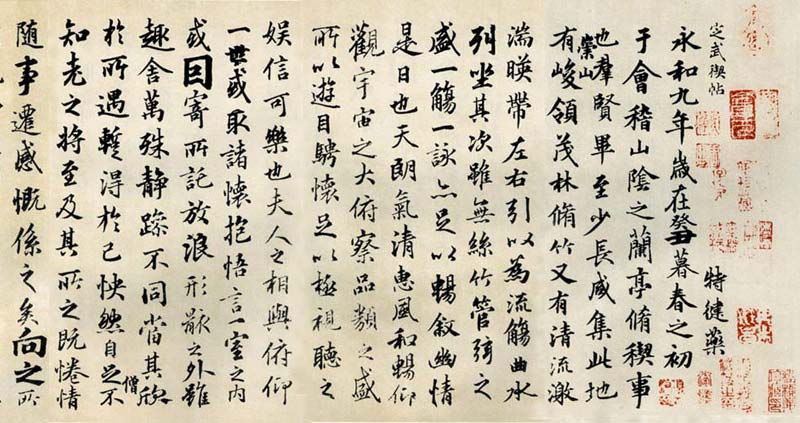 定武禊帖
特健藥
永和九年歲在癸丑暮春之初
于會稽山陰之蘭亭脩稧事
也羣賢畢至少長咸集此地
有崇山峻領茂林脩竹又有清流激
湍暎帶左右引以為流觴曲水
列坐其次雖無絲竹管弦之
盛一觴一詠亦足以暢敘幽情
是日也天朗氣清惠風和暢仰
觀宇宙之大俯察品類之盛
所以遊目騁懷足以極視聽之
娛信可樂也夫人之相與俯仰
一世或取諸懷抱悟言一室之內
或因寄所託放浪形骸之外雖
趣舍萬殊靜躁不同當其欣
於所遇暫得於己怏然自足不
僧
知老之將至及其所之既惓情
隨事遷感慨係之矣向之所